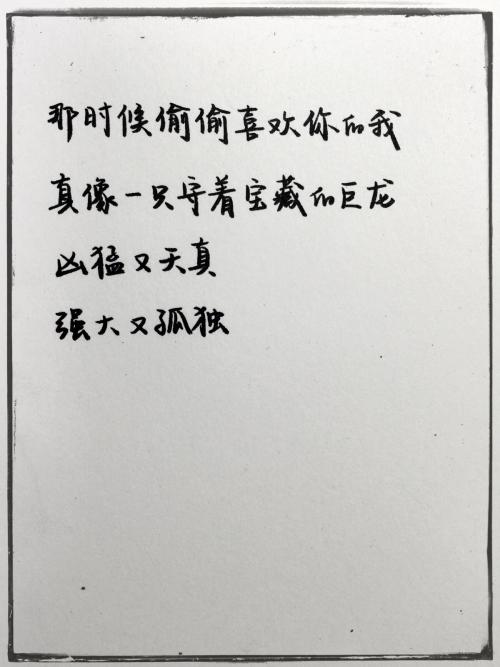 那时候偷偷喜欢你的我
真像一只守着宝藏的巨龙
凶猛又天真
强大又孤独